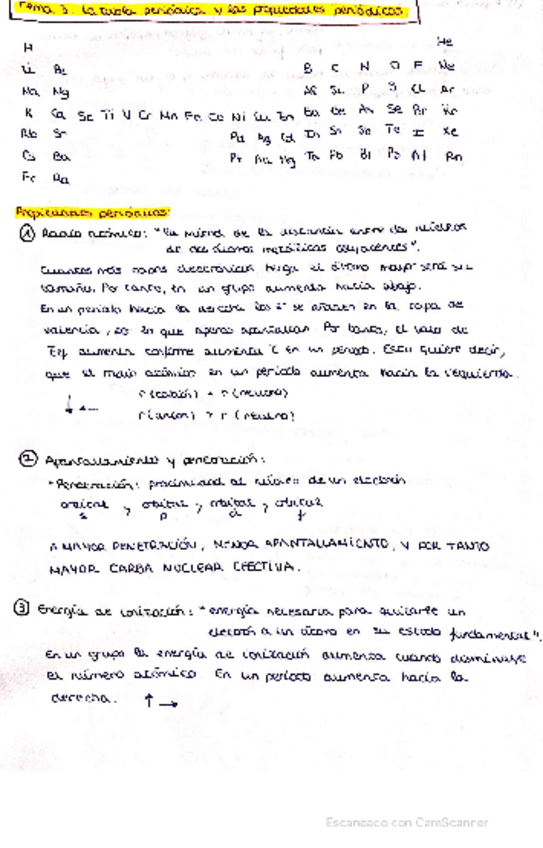 Tema 3: La tabla periódica y las propiedades periódicas
H He
Li Be B C N O F Ne
Na Mg Al Si P S Cl Ar
K Ca Sc Ti V Cr Mn Fe Co Ni Cu Zn Ga Ge As Se Br Kr
Rb Sr Pd Ag Cd In Sn Sb Te I Xe
Cs Ba Pt Au Hg Tl Pb Bi Po At Rn
Fr Ra
Propiedades periódicas:
① Radio atómico: "la mitad de la distancia entre dos núcleos
de dos átomos metálicos adyacentes".
Cuantas más capas electrónicas tenga el átomo mayor será su
tamaño. Por tanto, en un grupo aumenta hacia abajo.
En un periodo hacia la derecha los e⁻ se añaden en la capa de
valencia, por lo que apenas apantallan. Por tanto, el valor de
Zef aumenta conforme aumenta Z en un periodo. Esto quiere decir,
que el radio atómico en un periodo aumenta hacia la izquierda.
↓ ← r (catión) < r (neutro)
r (anión) > r (neutro)
② Apantallamiento y penetración:
• Penetración: proximidad al núcleo de un electrón
orbital s > orbital p > orbital d > orbital f
A MAYOR PENETRACIÓN, MENOR APANTALLAMIENTO, Y POR TANTO
MAYOR CARGA NUCLEAR EFECTIVA.
③ Energía de ionización: "energía necesaria para quitarle un
electrón a un átomo en su estado fundamental".
En un grupo la energía de ionización aumenta cuando disminuye
el número atómico. En un periodo aumenta hacia la
derecha. ↑ →
Escaneado con CamScanner